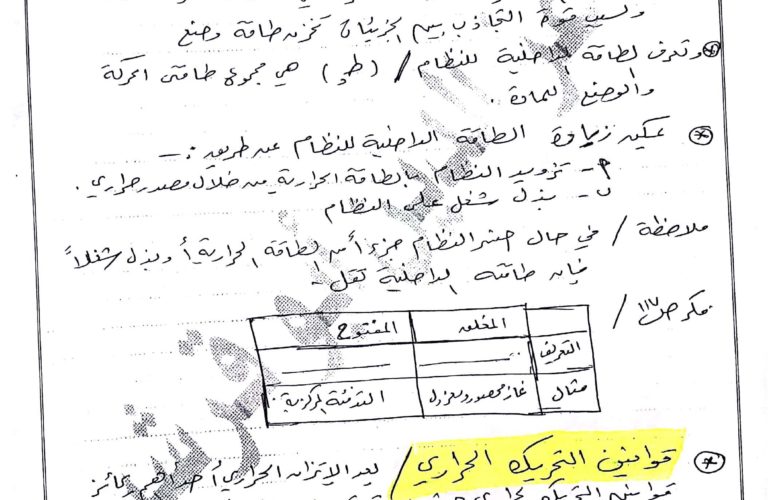 وبسبب قوة التجاذب بين الجزيئات تخزن طاقة وضع
* وتعرف الطاقة الداخلية للنظام / (طد) هي مجموع طاقتي الحركة
والوضع للمادة .
* يمكن زيادة الطاقة الداخلية للنظام عن طريق :-
أ- تزويد النظام بالطاقة الحرارية من خلال مصدر حراري .
ب- بذل شغل على النظام
ملاحظة / في حال خسر النظام جزء من الطاقة الحرارية أو بذل شغلاً
فإن طاقته الداخلية تقل .
فكر ص ١١٧ /
المغلق المفتوح
التعريف
مثال غاز محصور ومعزول التدفئة المركزية
* قوانين التحريك الحراري / يعد الاتزان الحراري أحد أهم ركائز
قوانين التحريك الحراري